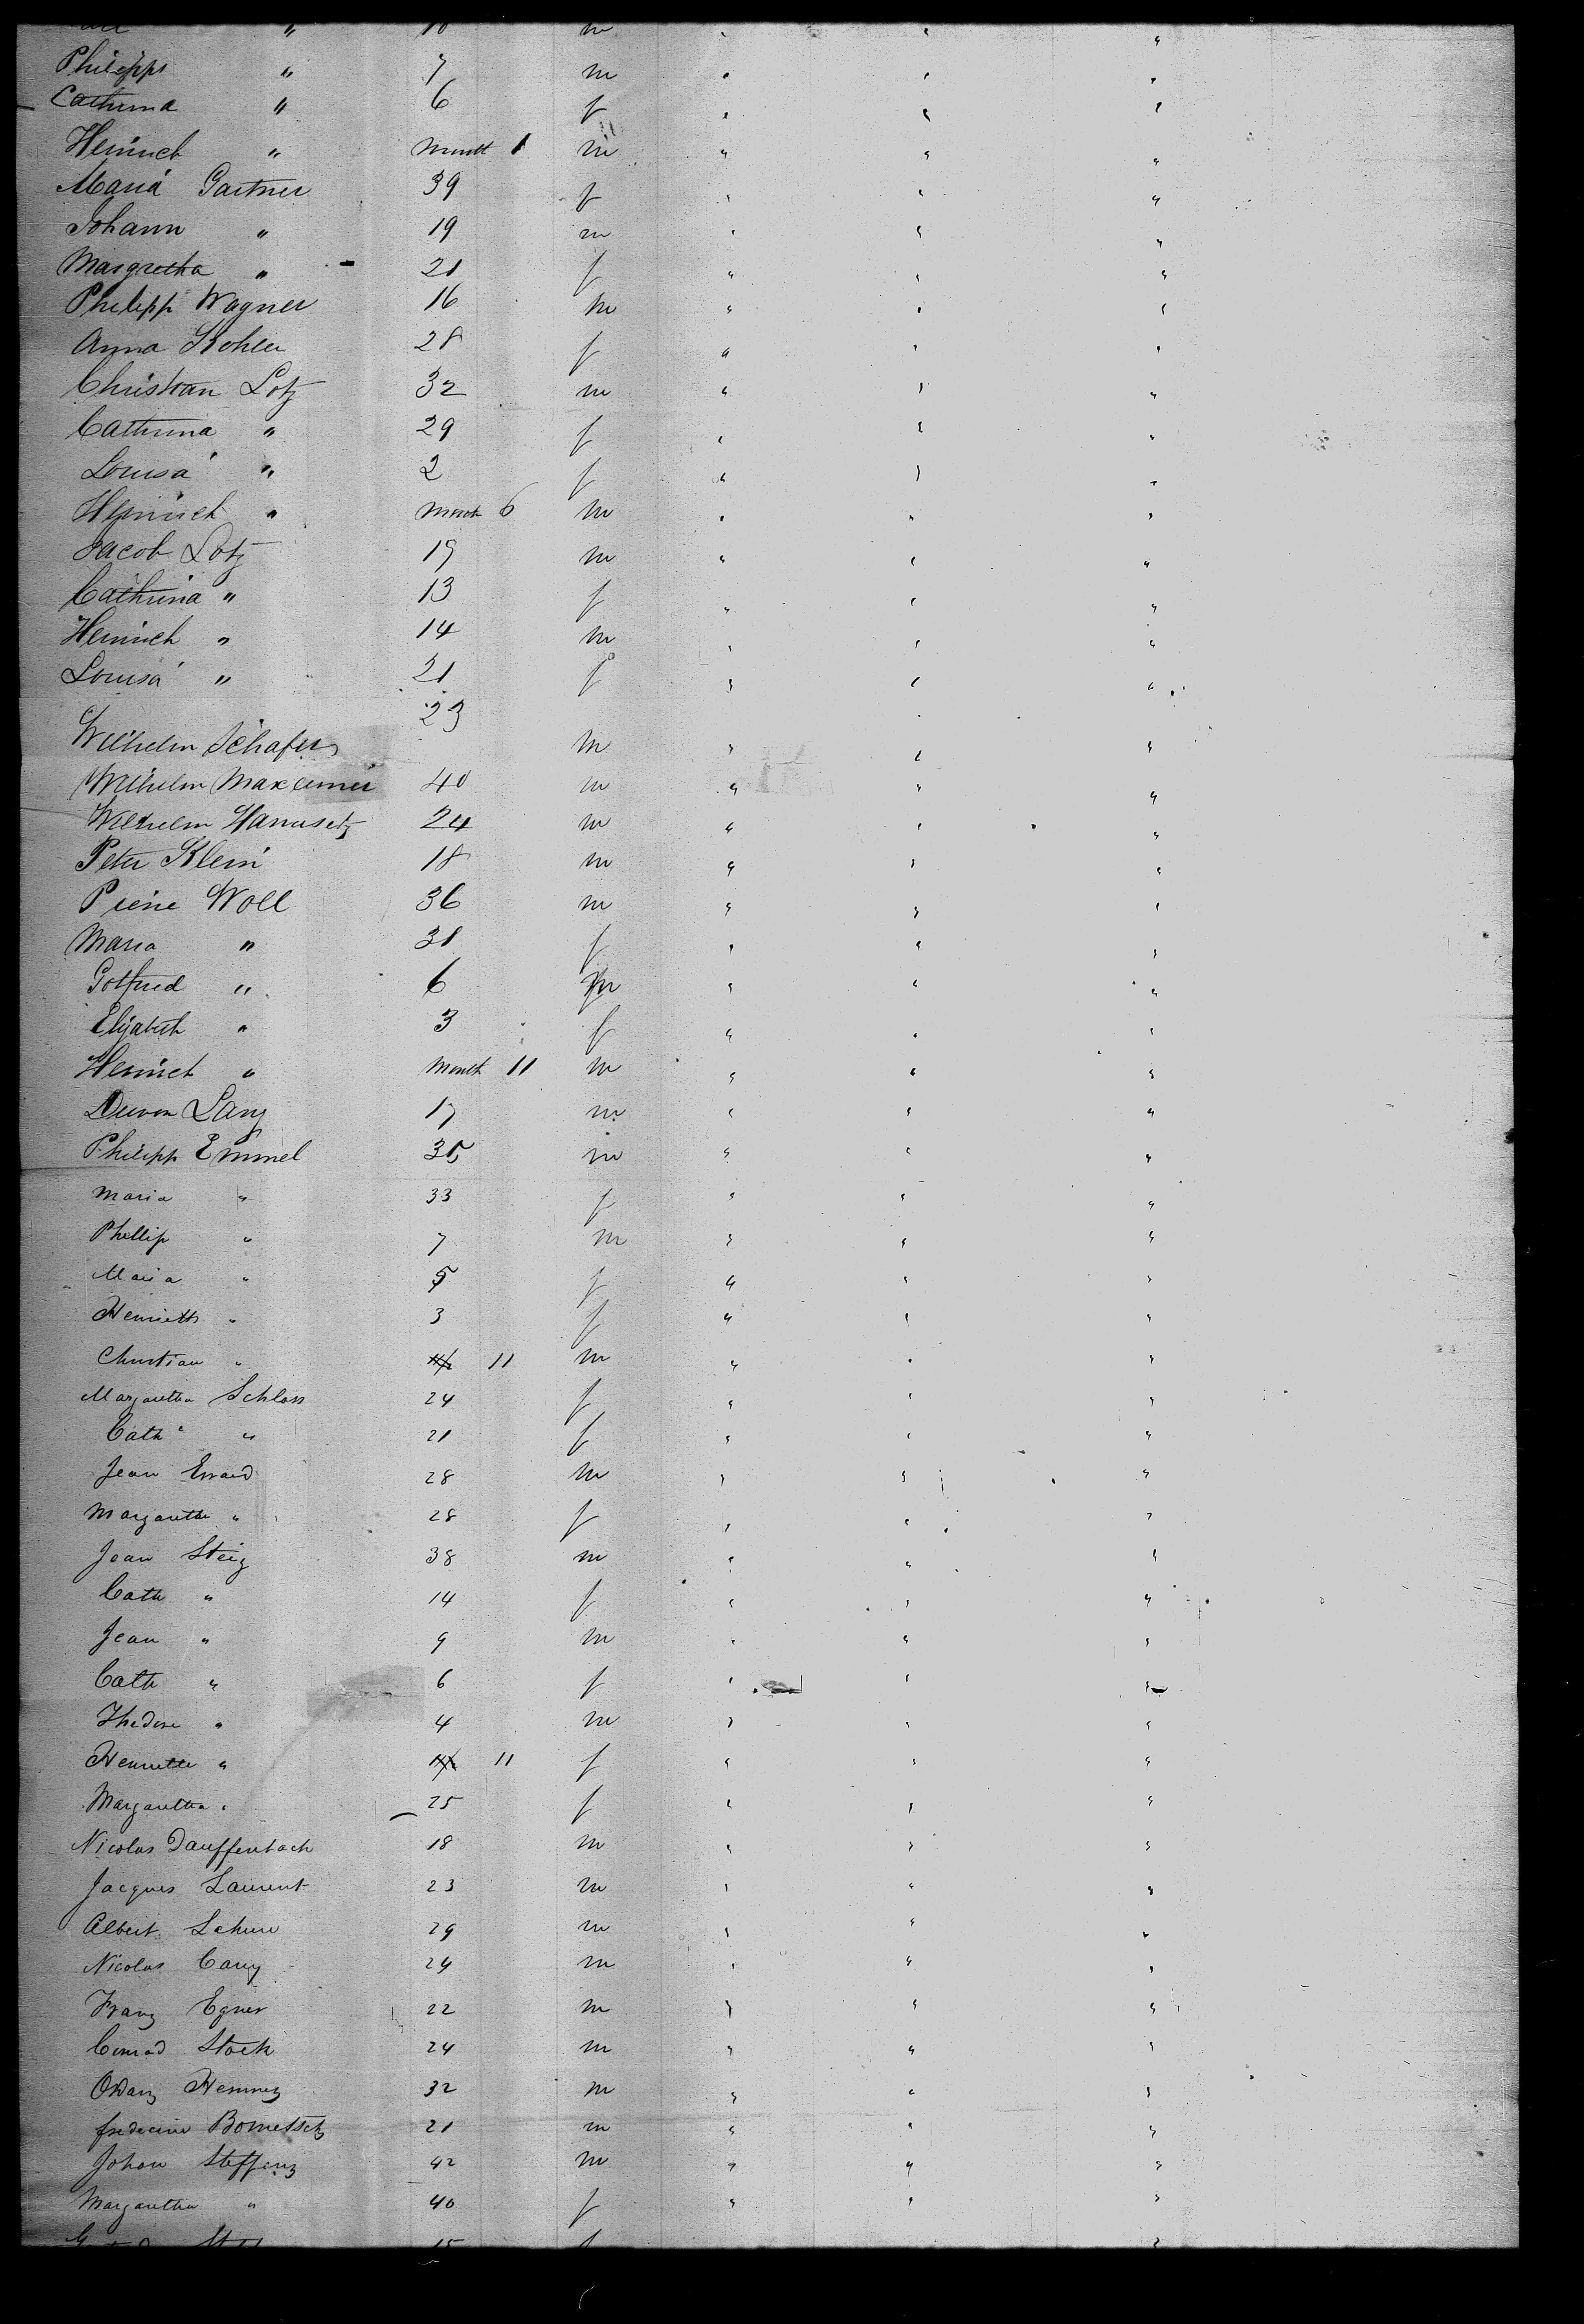 10 m " " "
Philipps " 7 m " " "
Cathrina " 6 f " " "
Heinrich " Month 1 m " " "
Maria Gartner 39 f " " "
Johann " 19 m " " "
Margretha " 21 f " " "
Philipp Wagner 16 m " " "
Anna Kohler 28 f " " "
Christian Lotz 32 m " " "
Cathrina " 29 f " " "
Louisa " 2 f " " "
Heinrich " Month 6 m " " "
Jacob Lotz 19 m " " "
Cathrina " 13 f " " "
Heinrich " 14 m " " "
Louisa " 21 f " " "
Wilhelm Schafer 23 m " " "
Wilhelm 40 m " " "
Wilhelm Hanusetz 24 m " " "
Peter Klein 18 m " " "
Pierre Woll 36 m " " "
Maria " 31 f " " "
Gotfried " 6 m " " "
Elizabeth " 3 f " " "
Heinrich " Month 11 m " " "
Lang 17 m " " "
Philipp Emmel 35 m " " "
Maria " 33 f " " "
Phillip " 7 m " " "
Maria " 5 f " " "
Henrietta " 3 f " " "
Christian " 11 m " " "
Margaretha Schloss 24 f " " "
Cath " 21 f " " "
Jean Errard 28 m " " "
Margaretha " 28 f " " "
Jean Steig 38 m " " "
Cath " 14 f " " "
Jean " 9 m " " "
Cath " 6 f " " "
Thedore " 4 m " " "
Henriette " 11 f " " "
Margaretha " 25 f " " "
Nicolas Dauffenbach 18 m " " "
Jacques Laurent 23 m " " "
Albert 29 m " " "
Nicolas Cany 24 m " " "
Franz Egner 22 m " " "
Conrad Stock 24 m " " "
32 m " " "
21 m " " "
Johan Steffanz 42 m " " "
Margaretha " 40 f " " "
15 f "